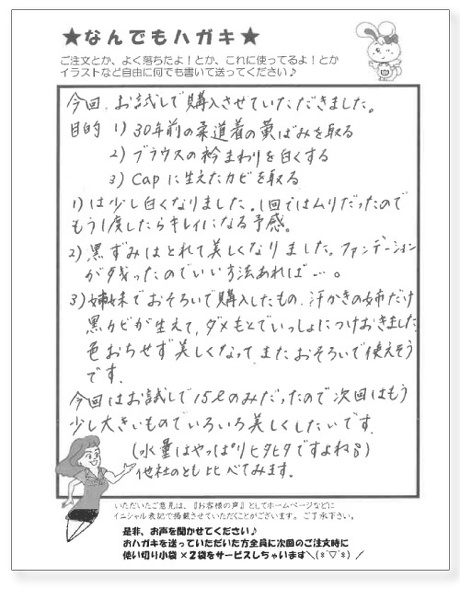 ★なんでもハガキ★
ご注文とか、よく落ちたよ！とか、これに使ってるよ！とか
イラストなど自由に何でも書いて送ってください♪
今回、お試しで購入させていただきました。
目的 1) 30年前の柔道着の黄ばみを取る
2) ブラウスの衿まわりを白くする
3) Capに生えたカビを取る
1)は少し白くなりました。1回ではムリだったので
もう1度したらキレイになる予感。
2) 黒ずみはとれて美しくなりました。ファンデーション
が残ったのでいい方法あれば…。
3) 姉妹でおそろいで購入したもの、汗かきの姉だけ
黒カビが生えて、ダメもとでいっしょにつけおきました
色おちせず美しくなって またおそろいで使えそう
です。
今回はお試しで15ℓのみだったので次回はもう
少し大きいものでいろいろ美しくしたいです。
(水量はやっぱりヒタヒタですよね
他社のとも比べてみます。
いただいたご意見は、『お客様の声』としてホームページなどに
イニシャル表記で掲載させていただくことがございます。ご了承下さい。
是非、お声を聞かせてください♪
おハガキを送っていただいた方全員に次回のご注文時に
使い切り小袋×2袋をサービスしちゃいます＼(*´▽`*)／